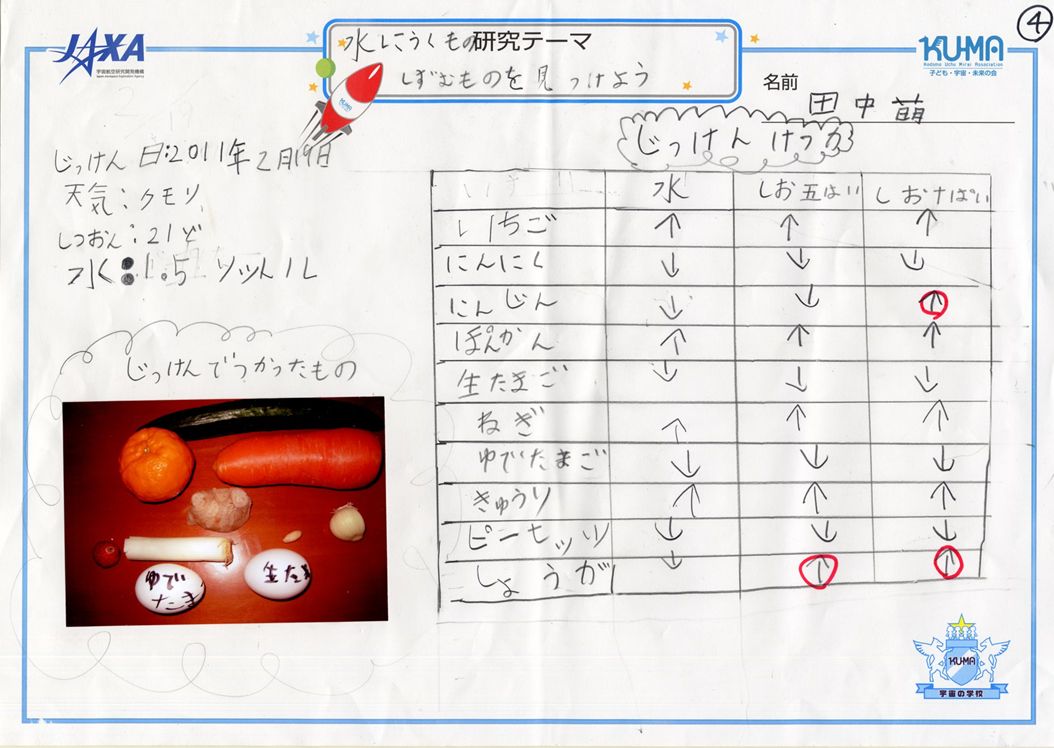 ④
JAXA
宇宙航空研究開発機構
Japan Aerospace Exploration Agency
水にうくもの研究テーマ
しずむものを見つけよう
KUMA
KU-MA
Kodomo Uchu Mirai Association
子ども・宇宙・未来の会
名前 田中萌
じっけんけっか
じっけん日:2011年2月19日
天気:クモリ
しつおん:21ど
水:1.5リットル
水 しお五はい しお十ぱい
いちご ↑ ↑ ↑
にんにく ↓ ↓ ↓
にんじん ↓ ↓ ↑
ぽんかん ↑ ↑ ↑
生たまご ↓ ↓ ↓
ねぎ ↑ ↑ ↑
ゆでたまご ↓ ↓ ↓
きゅうり ↑ ↑ ↑
ピーナッツ ↓ ↓ ↓
しょうが ↓ ↑ ↑
じっけんでつかったもの
ゆで
たま
生たま
KUMA
宇宙の学校